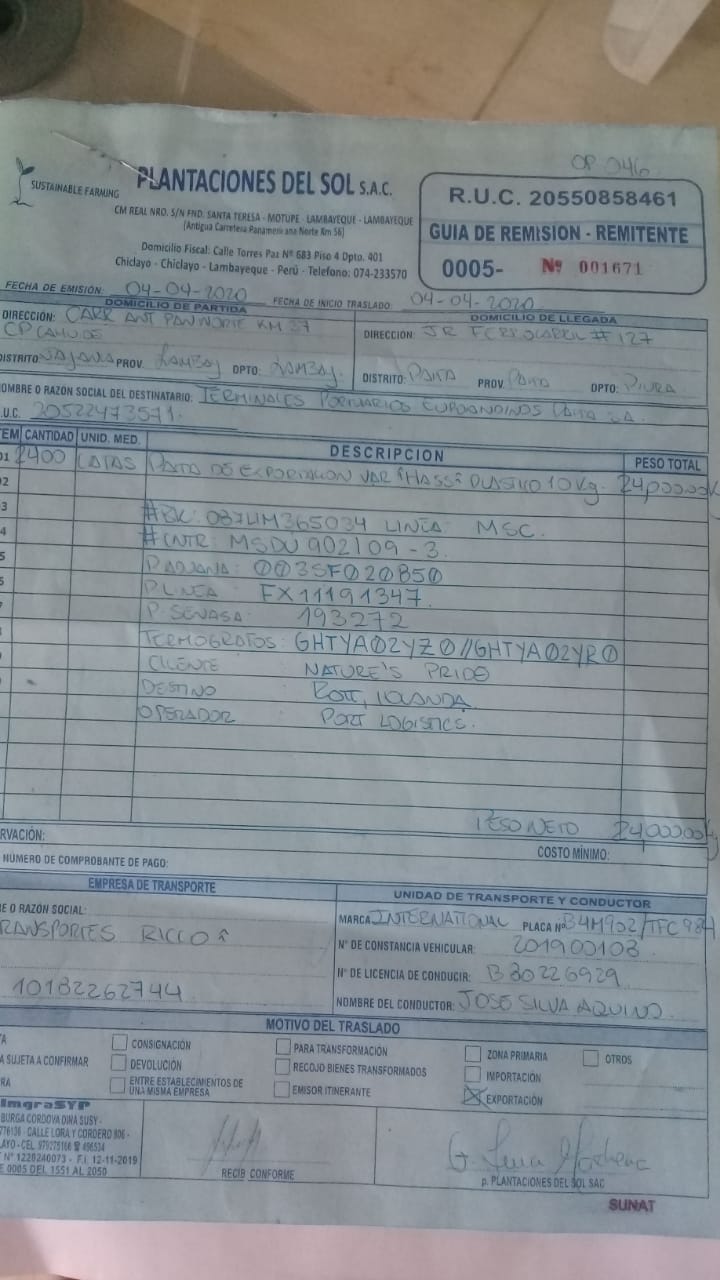 OP 046
SUSTAINABLE FARMING
PLANTACIONES DEL SOL S.A.C.
CM REAL NRO. S/N FND. SANTA TERESA - MOTUPE - LAMBAYEQUE - LAMBAYEQUE
(Antigua Carretera Panamericana Norte Km 56)
Domicilio Fiscal: Calle Torres Paz Nº 683 Piso 4 Dpto. 401
Chiclayo - Chiclayo - Lambayeque - Perú - Telefono: 074-233570
R.U.C. 20550858461
GUIA DE REMISION - REMITENTE
0005- Nº 001671
FECHA DE EMISIÓN: 04-04-2020 FECHA DE INICIO TRASLADO: 04-04-2020
DOMICILIO DE PARTIDA
DIRECCIÓN: CARR ANT PAN NORTE KM 37
CP CAHUIDE
DISTRITO: PROV. LAMBAY. DPTO: LAMBAY.
DOMICILIO DE LLEGADA
DIRECCIÓN: JR FERROCARRIL # 127
DISTRITO: PAITA PROV. PAITA DPTO: PIURA
OMBRE O RAZÓN SOCIAL DEL DESTINATARIO: TERMINALES PORTUARIOS EUROANDINOS PAITA SA.
.U.C. 20522473571.
TEM CANTIDAD UNID. MED. DESCRIPCION PESO TOTAL
01 2400 CAJAS PALTA DE EXPORTACION VAR "HASS" PLASTICO 10 Kg. 24,000.00 K
02
3 #BK: 087LIM365034 LINEA: MSC.
4 #CNTR: MSDU 902109-3.
5 P. ADUANA: 003SF020850
6 P. LINEA: FX11191347.
P. SENASA: 193272
TERMOGRAFOS: GHTYA02YZ0//GHTYA02YR0
CLIENTE NATURE'S PRIDE
DESTINO : ROTT, HOLANDA
OPERADOR : PORT LOGISTICS.
PESO NETO 24,000.00 Kg
RVACIÓN:
COSTO MÍNIMO:
NÚMERO DE COMPROBANTE DE PAGO:
EMPRESA DE TRANSPORTE
E O RAZÓN SOCIAL:
RANSPORTES RICCO
10182262744
UNIDAD DE TRANSPORTE Y CONDUCTOR
MARCA INTERNATIONAL PLACA Nº B4M902/TFC984
N° DE CONSTANCIA VEHICULAR: 201900103
N° DE LICENCIA DE CONDUCIR: B30226929
NOMBRE DEL CONDUCTOR: JOSE SILVA AQUINO.
MOTIVO DEL TRASLADO
TA
A SUJETA A CONFIRMAR
RA
CONSIGNACIÓN
DEVOLUCIÓN
ENTRE ESTABLECIMIENTOS DE
UNA MISMA EMPRESA
PARA TRANSFORMACIÓN
RECOJO BIENES TRANSFORMADOS
EMISOR ITINERANTE
ZONA PRIMARIA
IMPORTACIÓN
EXPORTACIÓN
OTROS
ImgraSYP
BURGA CORDOVA DINA SUSY -
776136 - CALLE LORA Y CORDERO 806 -
LAYO - CEL. 979275166 496534
N° 1228240073 - F.I. 12-11-2019
E 0005 DEL 1551 AL 2050
RECIBÍ CONFORME
p. PLANTACIONES DEL SOL SAC
SUNAT